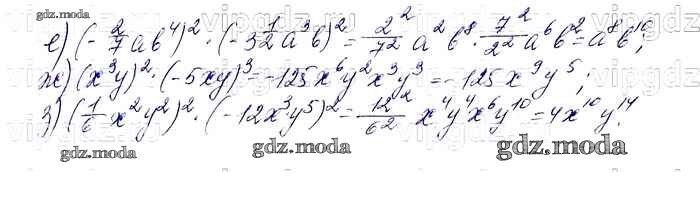 е) (-2/7 ab⁴)² · (-3 1/2 a³b)² = 2²/7² a²b⁸ · 7²/2² a⁶b² = a⁸b¹⁰;
ж) (x³y)² · (-5xy)³ = -125x⁶y²x³y³ = -125x⁹y⁵;
з) (1/6 x²y²)² · (-12x³y⁵)² = 12²/6² x⁴y⁴x⁶y¹⁰ = 4x¹⁰y¹⁴.
gdz.moda gdz.moda gdz.moda
gdz.moda